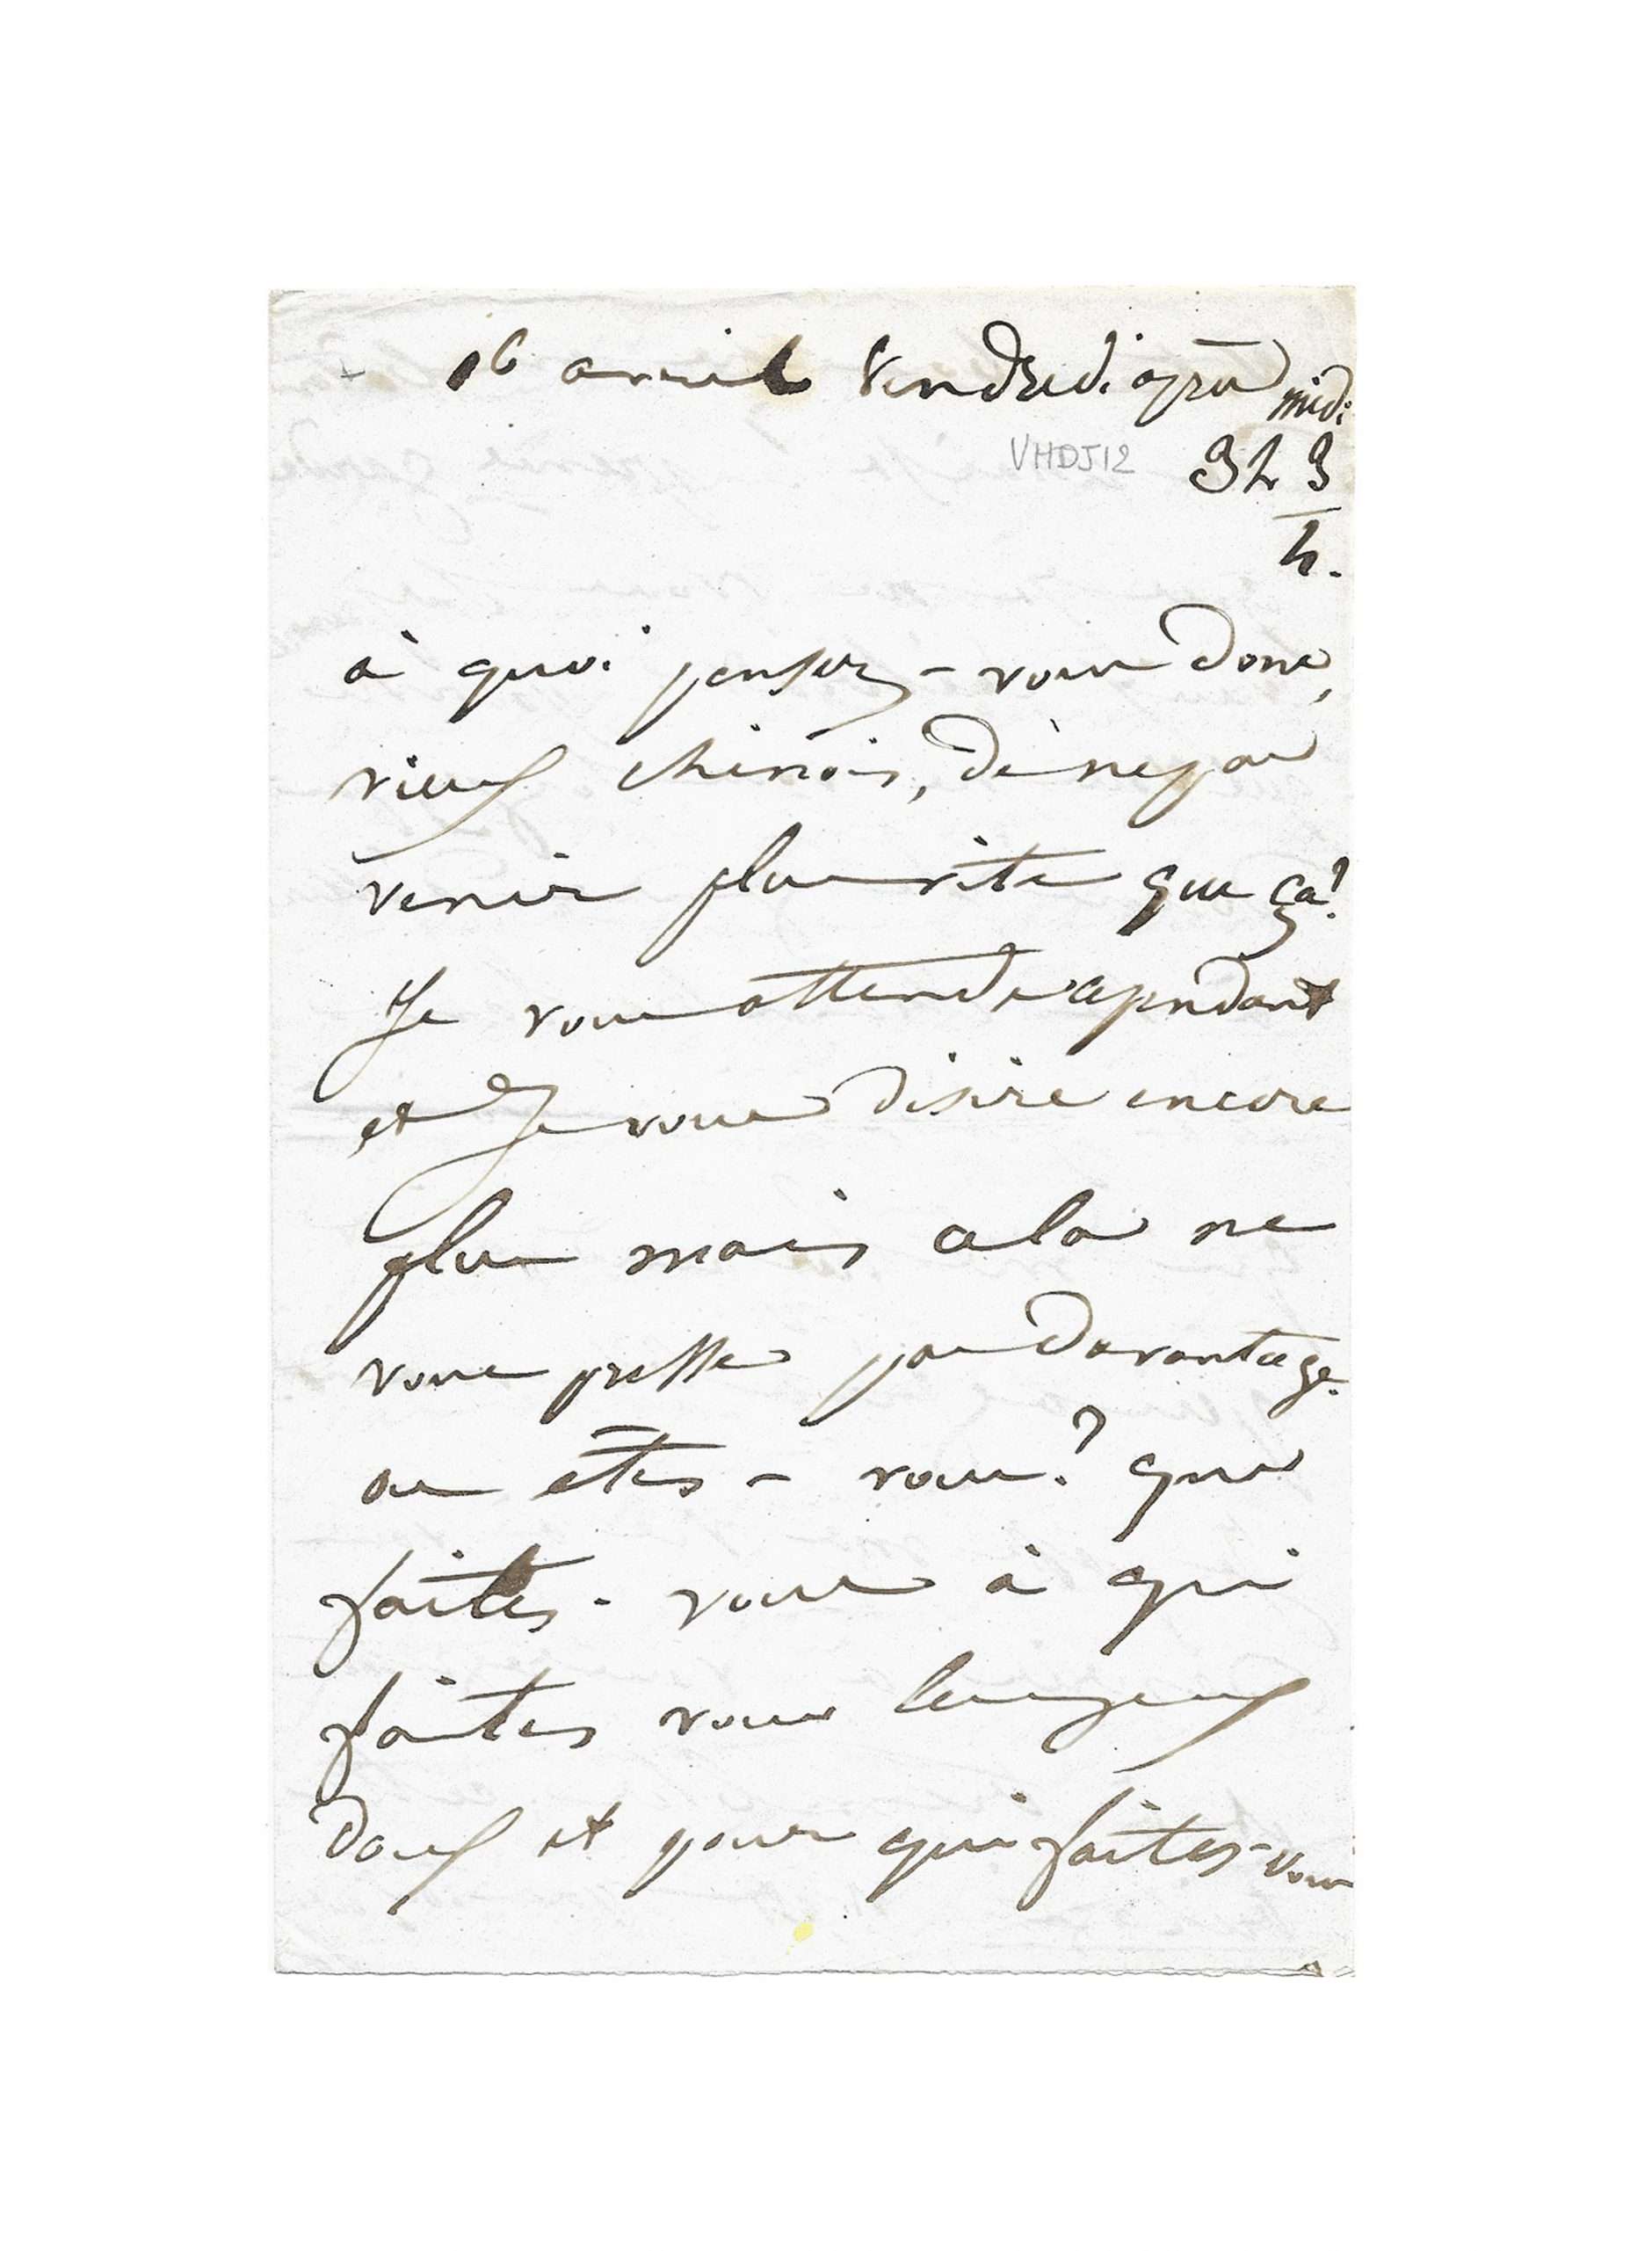 16 avril Vendredi après midi
VHDJ12
3 h 3
4.
à quoi pensez-vous donc,
vieux chinois, de ne pas
venir plus vite que ça?
Je vous attends cependant
et Je vous désire encore
plus mais cela ne
vous presse pas davantage.
ou êtes-vous? que
faites-vous à qui
faites vous les yeux
doux et pour qui faites-vous